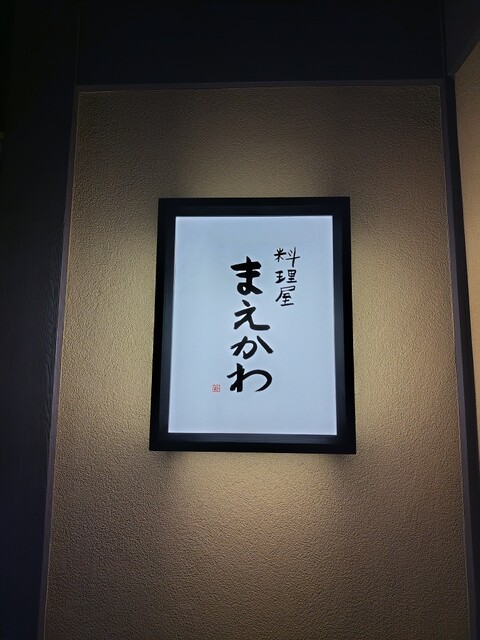 料理屋
まえかわ